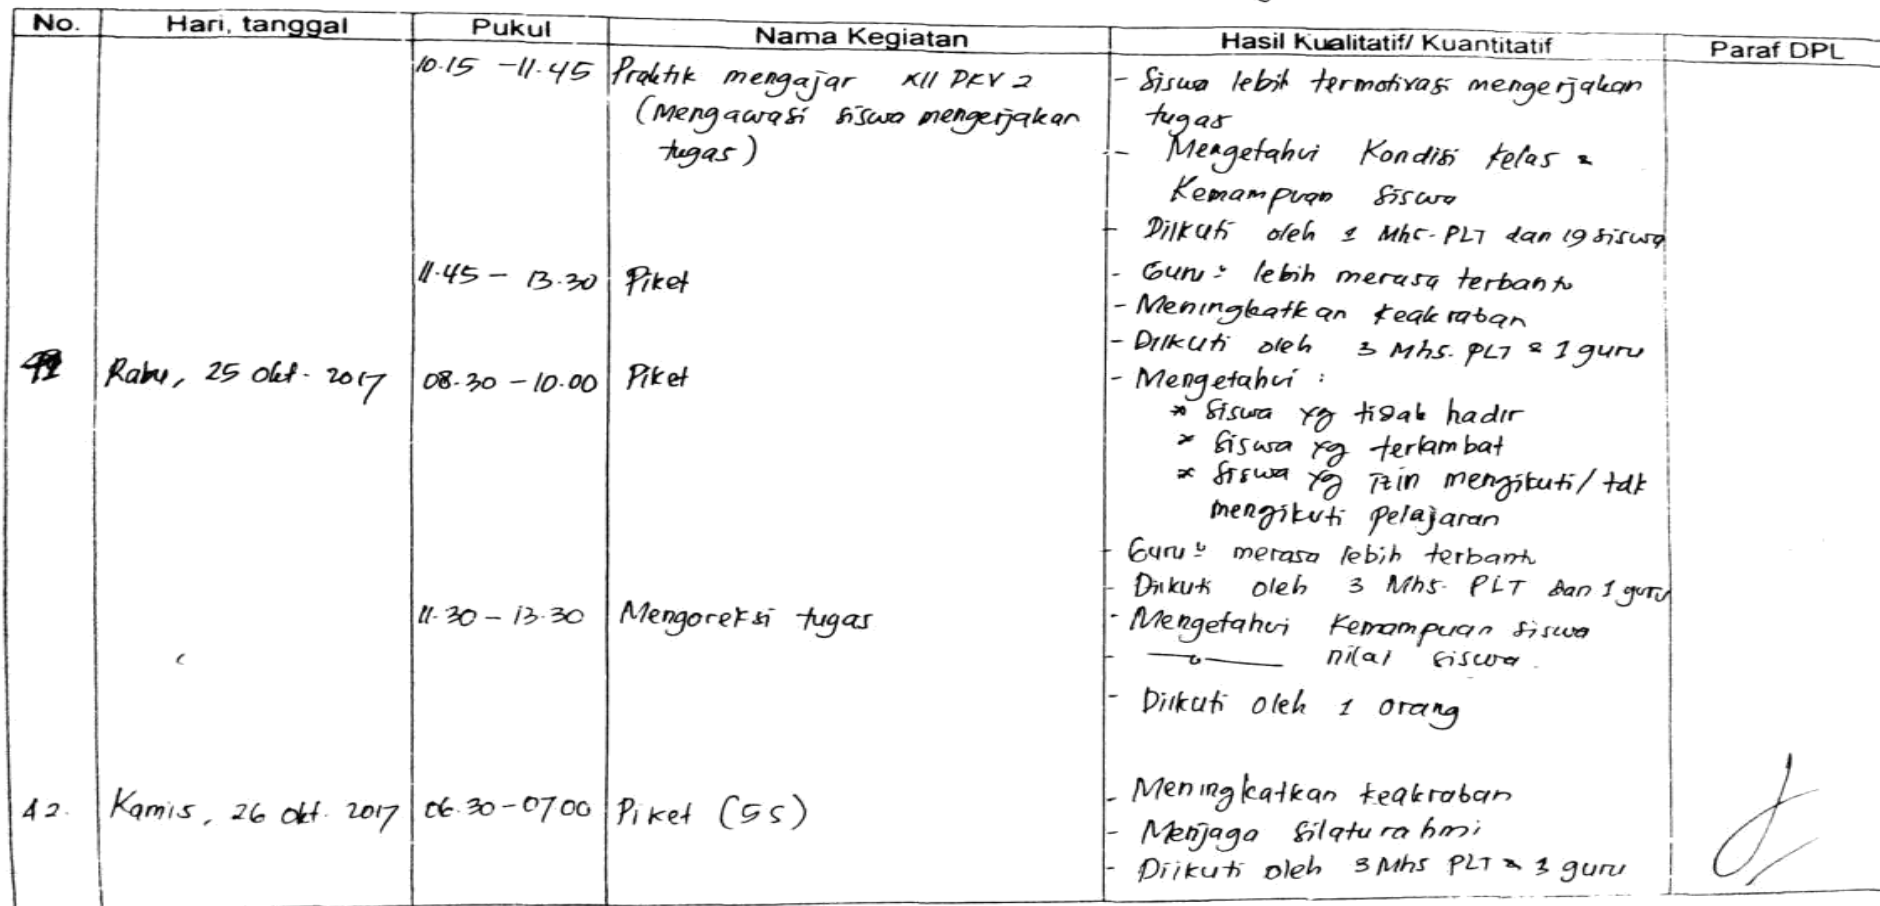 No. Hari, tanggal Pukul Nama Kegiatan Hasil Kualitatif/ Kuantitatif Paraf DPL
10.15 - 11.45 Praktik mengajar XII DKV 2 - Siswa lebih termotivasi mengerjakan
(Mengawasi siswa mengerjakan tugas
tugas) - Mengetahui Kondisi kelas &
Kemampuan siswa
- Diikuti oleh 1 Mhs. PLT dan 19 siswa
11.45 - 13.30 Piket - Guru² lebih merasa terbantu
- Meningkatkan keakraban
- Diikuti oleh 3 Mhs. PLT & 1 guru
Rabu, 25 Okt. 2017 08.30 - 10.00 Piket - Mengetahui :
* Siswa yg tidak hadir
* Siswa yg terlambat
* Siswa yg izin mengikuti/ tdk
mengikuti pelajaran
- Guru² merasa lebih terbantu
- Diikuti oleh 3 Mhs. PLT dan 1 guru
11.30 - 13.30 Mengoreksi tugas - Mengetahui Kemampuan siswa
- nilai siswa.
- Diikuti oleh 1 orang
42. Kamis, 26 Okt. 2017 06.30 - 07.00 Piket (5S) - Meningkatkan keakraban
- Menjaga Silaturahmi
- Diikuti oleh 3 Mhs PLT & 3 guru